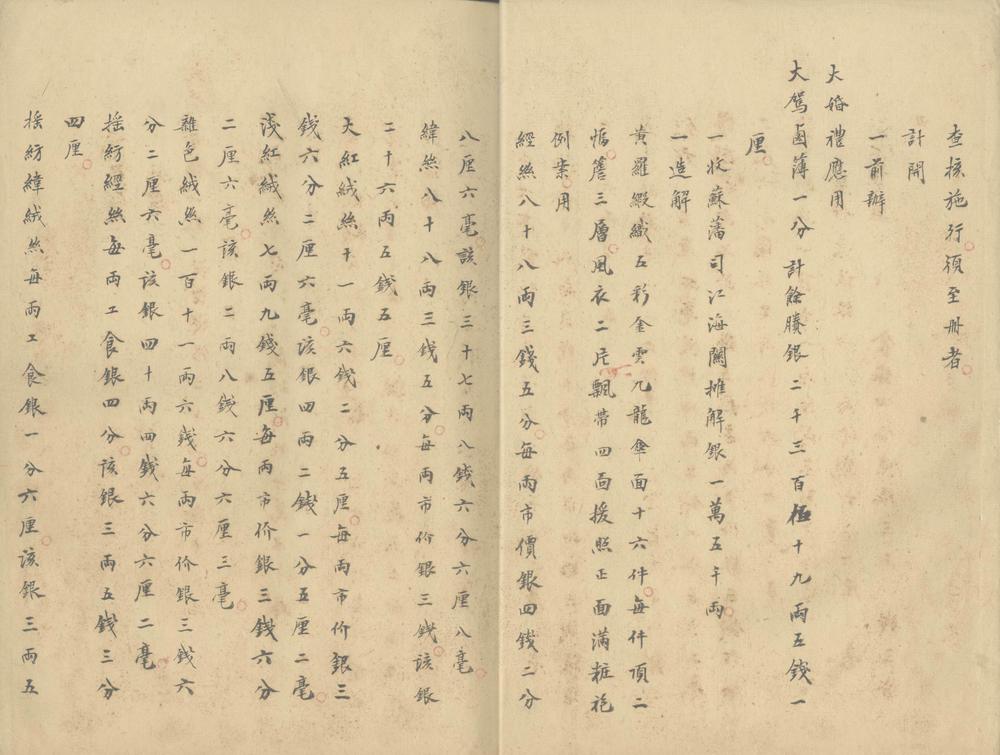 查核施行須至冊者
計開
一前辦
大婚禮應用
大駕鹵薄一分計餘賸銀二千三百伍十九兩五錢一
厘
一收蘇藩司江海關攤解銀一萬五千兩
一造解
黃羅緞織五彩金雲九龍傘面十六件每件頂二
幅簷三層風衣二片飄帶四面援照正面滿粧袍
例案用
經絲八十八兩三錢五分每兩市價銀四錢二分
八厘六毫該銀三十七兩八錢六分六厘八毫
緯絲八十八兩三錢五分每兩市价銀三錢該銀
二十六兩五錢五厘
大紅絨絲十一兩六錢二分五厘每兩市价銀三
錢六分二厘六毫該銀四兩二錢一分五厘二毫
淺紅絨絲七兩九錢五厘每兩市价銀三錢六分
二厘六毫該銀二兩八錢六分六厘三毫
雜色絨絲一百十一兩六錢每兩市价銀三錢六
分二厘六毫該銀四十兩四錢六分六厘二毫
搖紡經絲每兩工食銀四分該銀三兩五錢三分
四厘
搖紡緯絨絲每兩工食銀一分六厘該銀三兩五